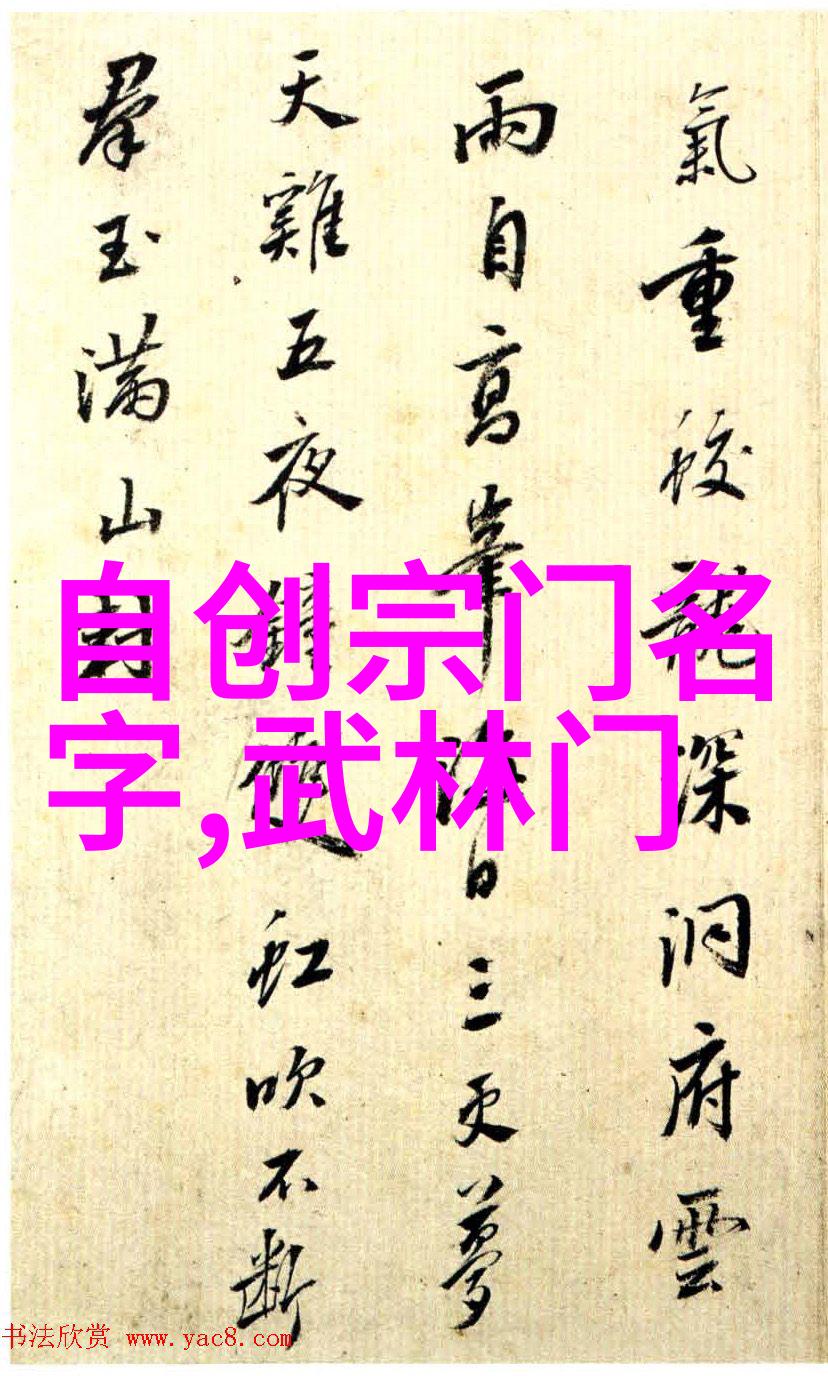 氣重蛟龍深洞府雲
雨自高峯降日三更夢
天雞五夜鐘
虹吹不斷
羣玉滿山
自创宗门名
字,武林门
书法欣赏 www.yac8.com